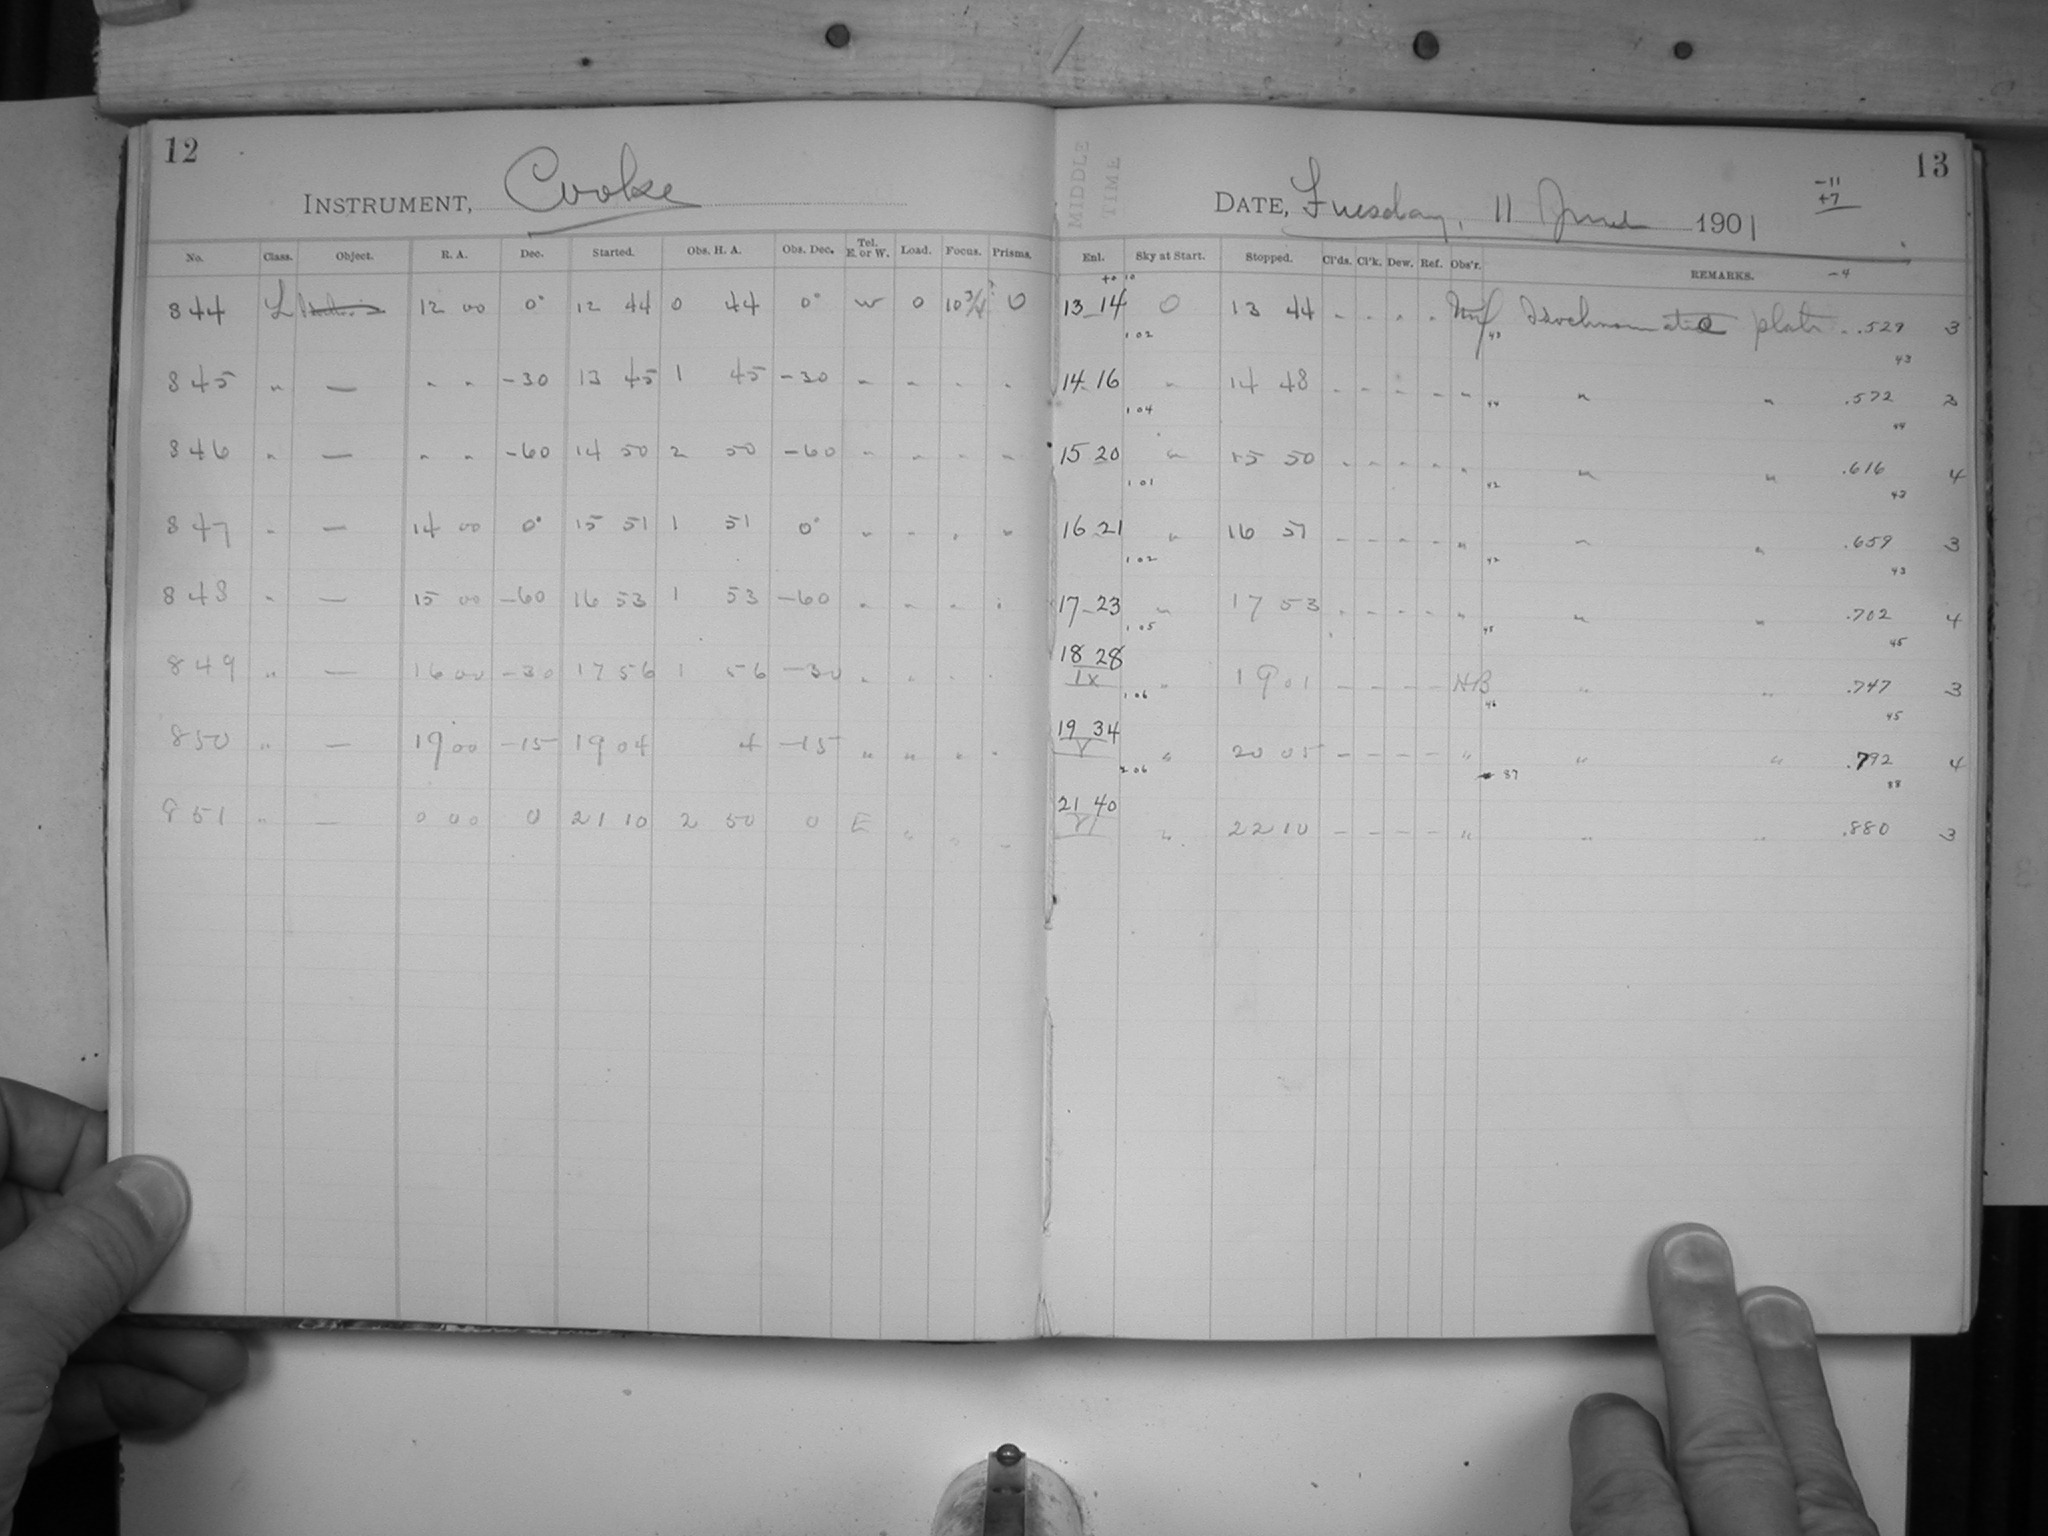 12
INSTRUMENT, Cooke
No. Class. Object. R. A. Dec. Started. Obs. H. A. Obs. Dec. Tel. E. or W. Load. Focus. Prisms.
844 L 12 00 0° 12 44 0 44 0° W 0 10 3/4 0
845 " — " " -30 13 45 1 45 -30 " " " "
846 " — " " -60 14 50 2 50 -60 " " " "
847 " — 14 00 0° 15 51 1 51 0° " " " "
848 " — 15 00 -60 16 53 1 53 -60 " " " "
849 " — 16 00 -30 17 56 1 56 -30 " " " "
850 " — 19 00 -15 19 04 4 -15 " " " "
851 " — 0 00 0 21 10 2 50 0 E " " "
13
MIDDLE
TIME
-11
+7
DATE, Tuesday, 11 June 1901
Enl. Sky at Start. Stopped. Cl'ds. Cl'k. Dew. Ref. Obs'r. REMARKS. -4
13 14 0 13 44 - - - - Isochromatic plate .529 3
1 02 43 43
14 16 " 14 48 - - - - " " " .572 3
1 04 44 44
15 20 " 15 50 - - - - " " " .616 4
1 01 42 43
16 21 " 16 51 - - - - " " " .659 3
1 02 42 43
17 23 " 17 53 - - - - " " " .702 4
1 05 45 45
18 28 " 19 01 - - - - HB " " .747 3
1x 1 06 46 45
19 34 " 20 05 - - - - " " " .792 4
Y 2 06 87 88
21 40 " 22 10 - - - - " " " .880 3